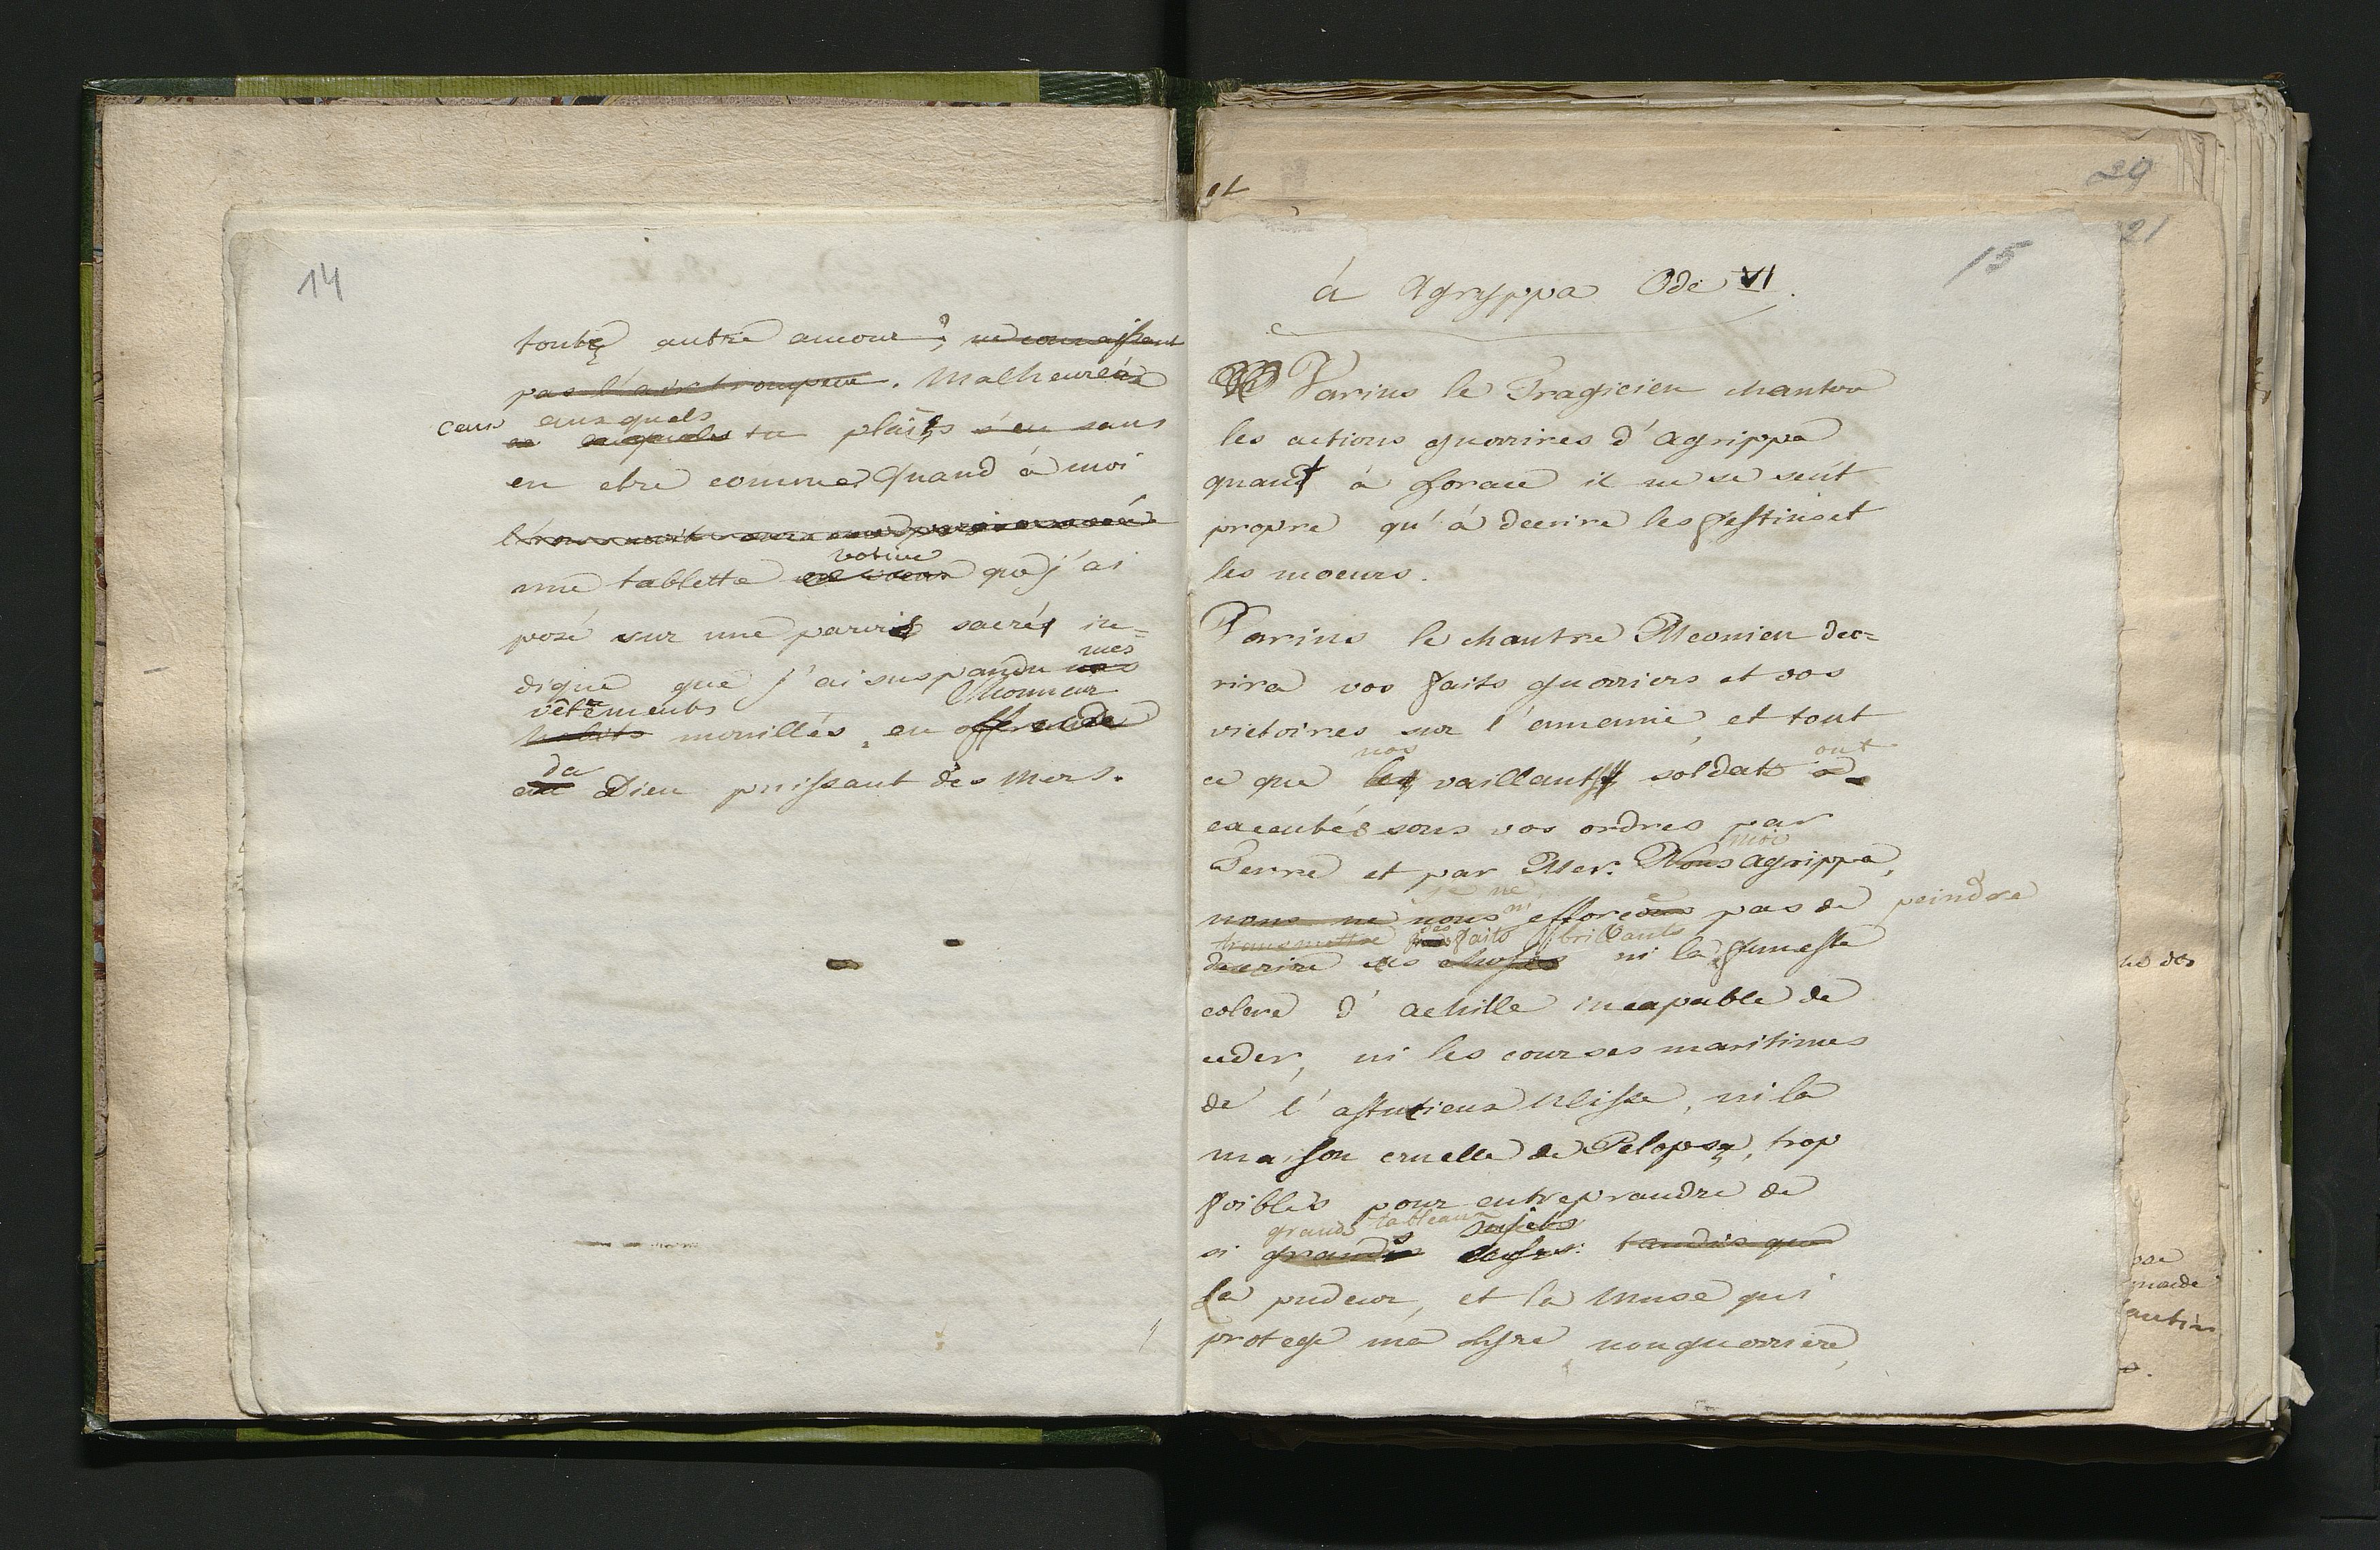 14
toute autre amour, ne connaissant
pas l'air trompeur. Malheureux
ceux auxquels
tu plais sans
en etre connue Quand à moi
votive
une tablette que j'ai
posé sur une parvis sacrés in=
mes
digue que j'ai suspandu
vêtements l'honneur
habits mouillés, en offrande
du
au Dieu puissant des Mers.
et
29
21
15
à Agryppa Ode VI.
Varius le Tragicien chantera
les actions guerrires d'Agrippa
quant à horace il ne se sent
propre qu'à decrire les festins et
les moeurs.
Varius le chantre Meonien dec=
rira vos faits guerriers et vos
victoires sur l'ennemie, et tout
nos ont
ce que les vaillants soldats a
executés sous vos ordres par
moi
Terre et par Mer. Nous Agrippa,
je ne m'
nous ne nous efforce pas de peindre
transmettre des faits brillants
decrire ces choses ni la funeste
colere d'Achille incapable de
ceder, ni les courses maritimes
de l'astutieux Ulisse, ni la
maison cruelle de Pelops, trop
foibles pour entreprandre de
grands tableaux sujets
si grands tandis que
La pudeur, et la Muse qui
protege ma lyre non guerriere,